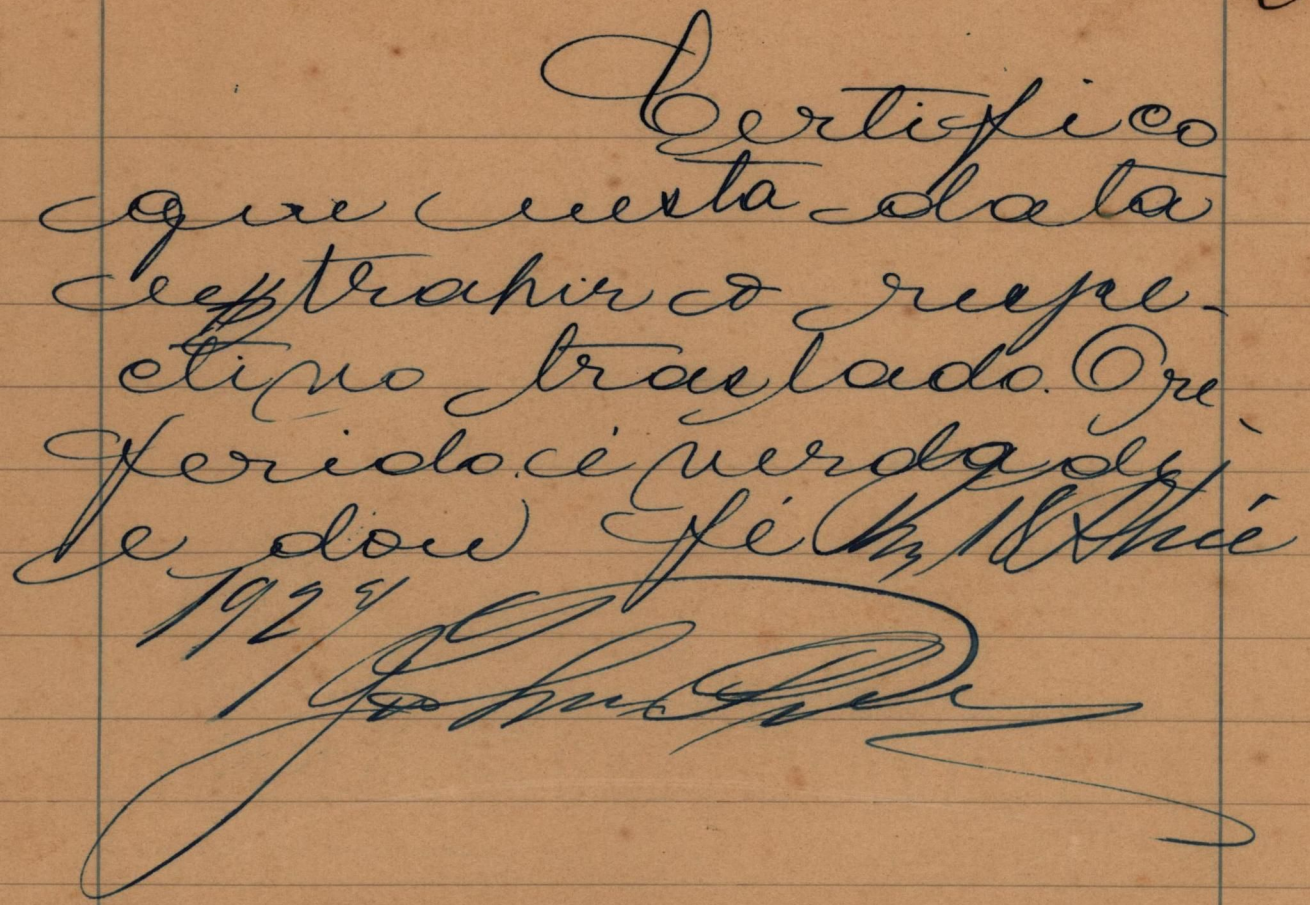 Certifico
que nesta data
extrahir o respe-
ctivo traslado. O re
ferido é verdade
e dou fé Em 18
1924